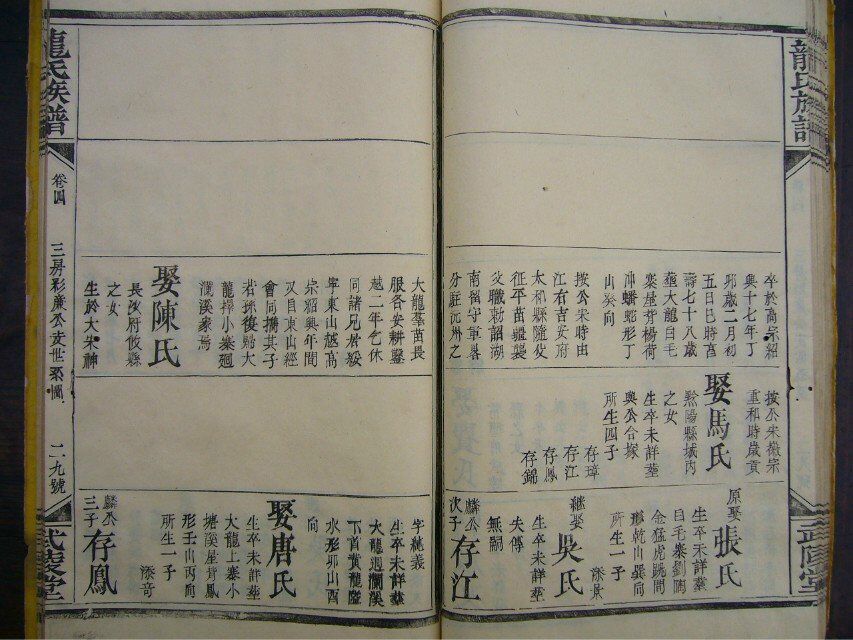 龍氏族譜
卒於高宗紹
興十七年丁
卯歲二月初
五日巳時享
壽七十八歲
葬大龍自毛
寨屋背楊荷
冲蟠蛇形丁
山癸向
按公宋時由
江右吉安府
太和縣隨父
征平苗蠻襲
父職勅詔湖
南留守軍署
分駐沅州之
按公宋徽宗
重和時歲貢
娶馬氏
黔陽縣城內
之女
生卒未詳葬
與公合塚
所生四子
存璋
存江
存鳳
存錦
原娶張氏
生卒未詳葬
自毛寨劉陶
金猛虎跳澗
形乾山巽向
所生一子
添景
繼娶吳氏
生卒未詳葬
失傳
無嗣
麟公次子存江
大龍等苗長
服各安耕鑿
越二年乞休
同諸兄君綏
寧東山越高
宗紹興年間
又自東山經
會同擕其子
若孫復歸大
龍擇小寨廻
瀾溪家焉
娶陳氏
長沙府攸縣
之女
生於大宋神
字純義
生卒未詳葬
大龍廻瀾溪
下首黃龍隘
水形卯山酉
向
娶唐氏
生卒未詳葬
大龍上寨小
塘溪屋背鳳
形壬山丙向
所生一子
添奇
麟公三子存鳳
龍氏族譜
卷四
三房彩廣公支世系圖
二九號
武陵堂